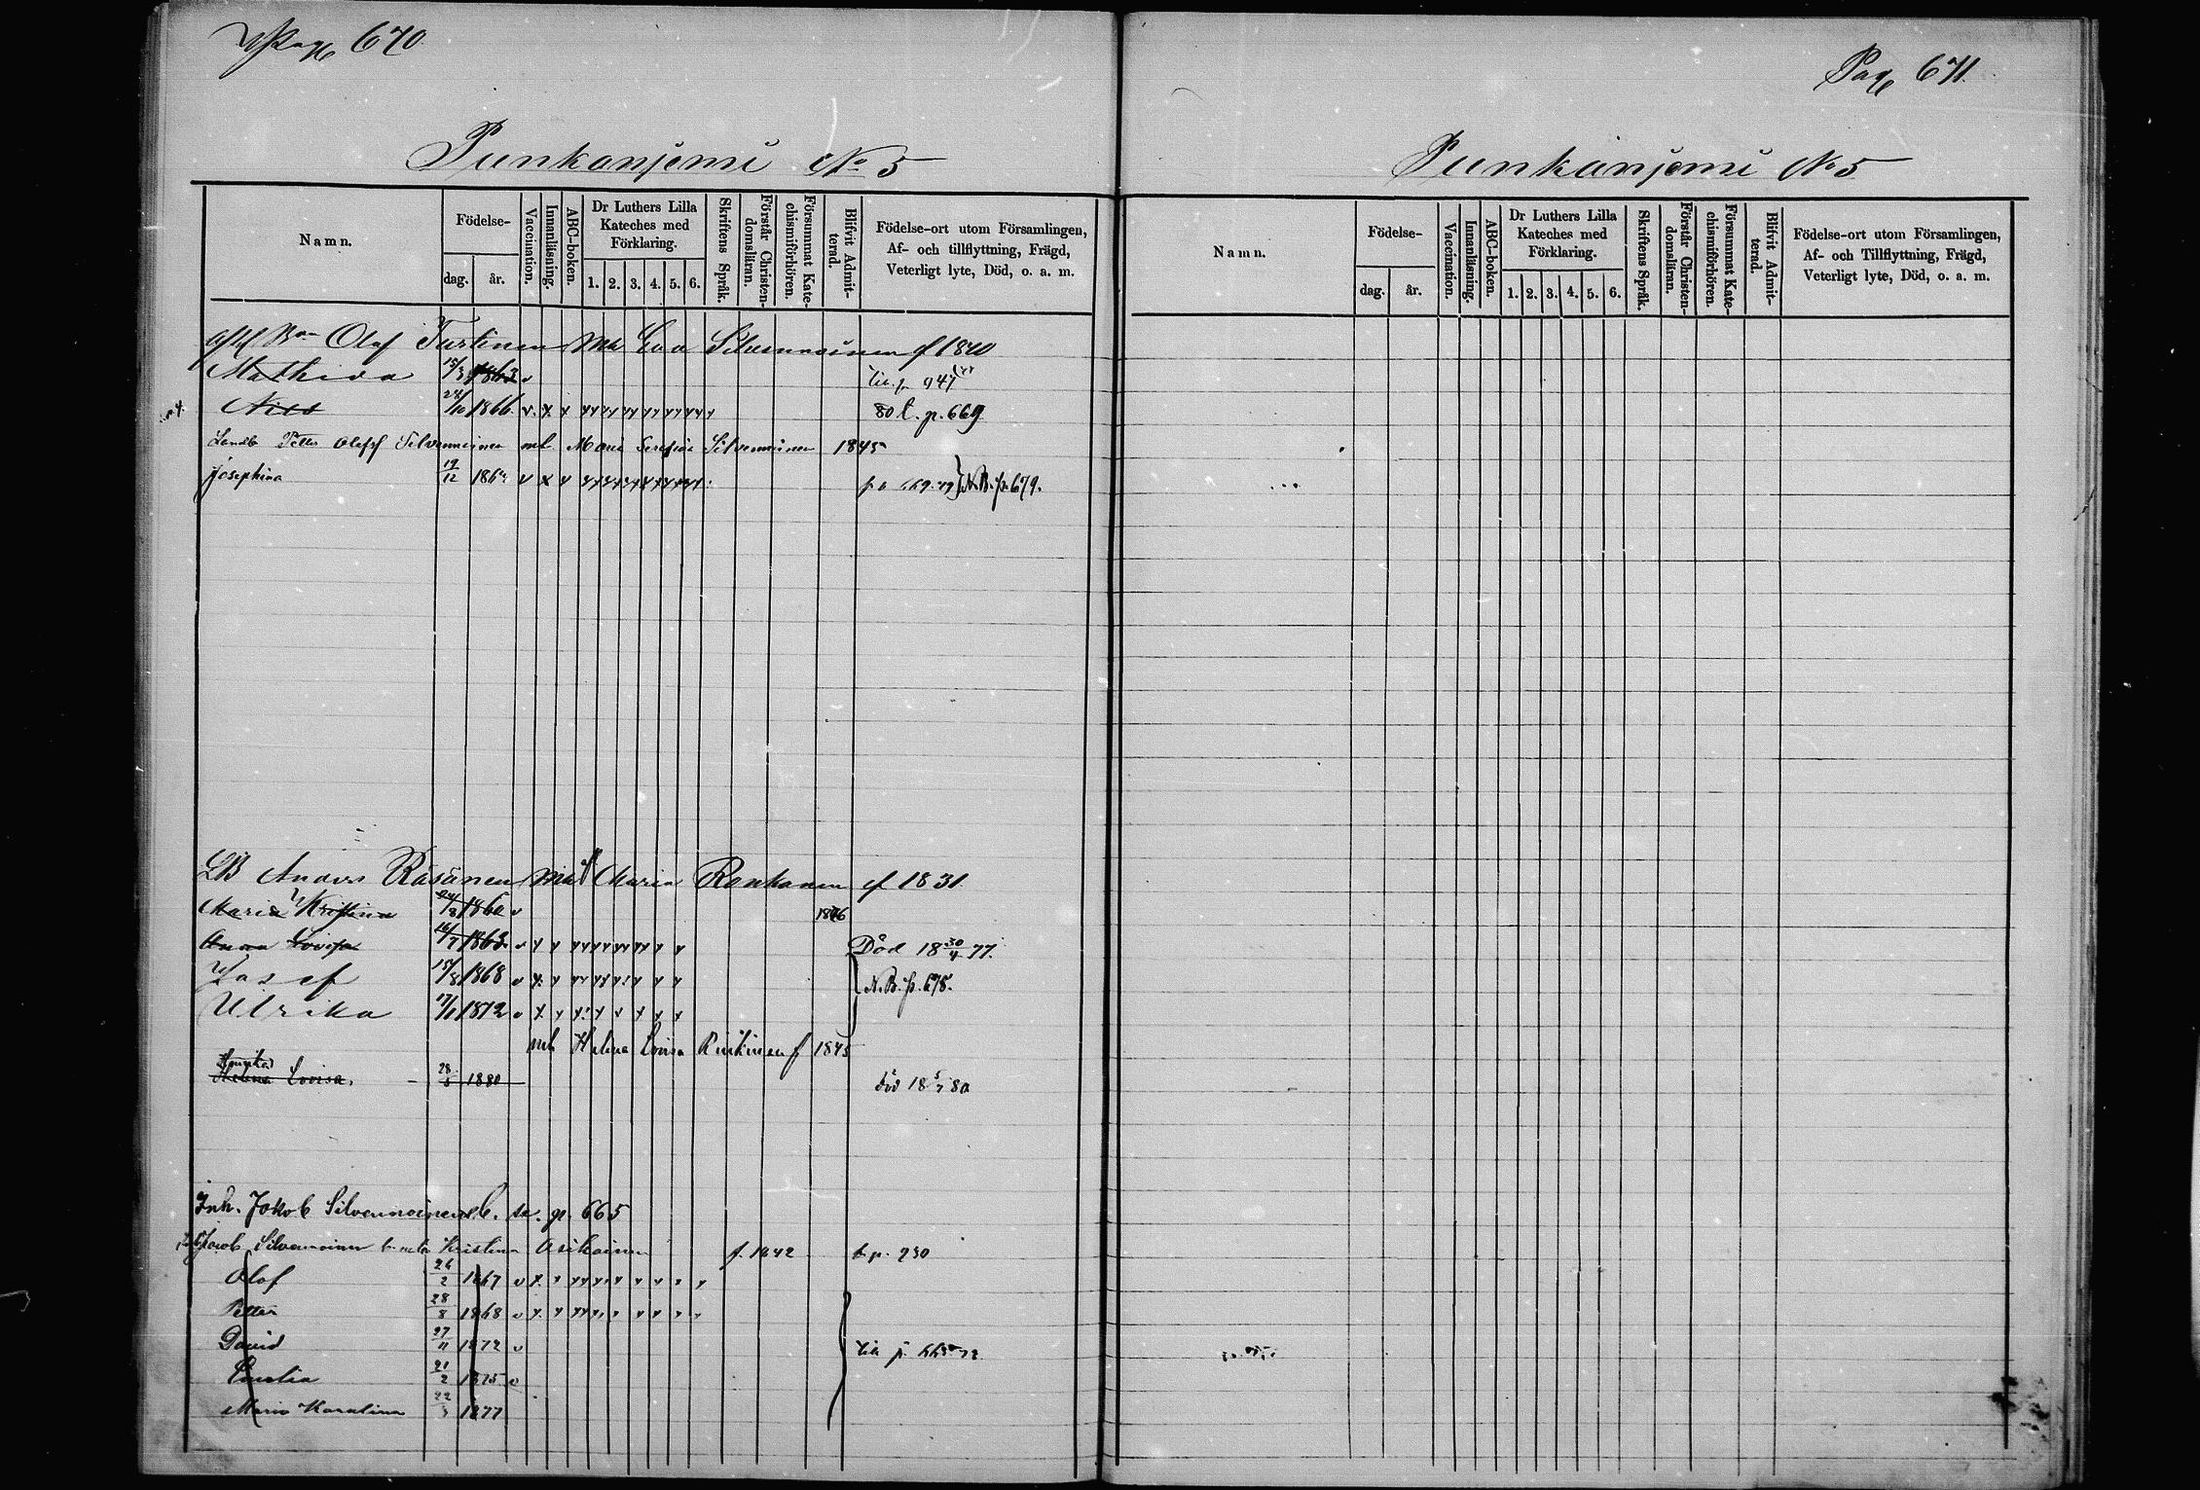 Pag 670.
Punkanjemi No 5
Namn.
Födelse-
dag. år.
Vaccination.
Innanläsning.
ABC-boken.
Dr Luthers Lilla Kateches med Förklaring.
1. 2. 3. 4. 5. 6.
Skriftens Språk.
Förstår Christen-domsläran.
Försummat Kate-chismiförhören.
Blifvit Admit-terad.
Födelse-ort utom Församlingen,
Af- och tillflyttning, Frägd,
Veterligt lyte, Död, o. a. m.
Olof Turtinen mh Eva Silvennoinen f 1840
Mathida 15/3 1863 v till p 947
Nils 28/10 1866 80 t. p. 669
Landb Petter Olofsf Silvennoinen mh. Maria Serafia Silvennoinen 1845
Josephina 19/12 N.B. p. 679.
LB Anders Räsänen mh Maria Ronkanen f 1831
Maria Kristina 1860 v 1876
Anna Lovisa 16/7 1863 v Död 18 30/4 77.
Josef 15/8 1868 v N.B. p. 678.
Ulrika 17/1 1872 v
mh Helena Lovisa Rinkinen f 1845
Helena Lovisa. 28/5 1880 död 18 5/7 80
Inh. Jakob Silvennoinen se. p. 665
Jacob Silvennoinen Kristina Asikainen f. 1842 t. p. 230
Olof 26/2 1867 v
Petter 28/8 1868 v
David 27/11 1872 v till p. 665
Emelia 21/2 1875 v
Maria Karolina 22/3 1877
Pag 671.
Punkanjemi No 5
Namn.
Födelse-
dag. år.
Vaccination.
Innanläsning.
ABC-boken.
Dr Luthers Lilla Kateches med Förklaring.
1. 2. 3. 4. 5. 6.
Skriftens Språk.
Förstår Christen-domsläran.
Försummat Kate-chismiförhören.
Blifvit Admit-terad.
Födelse-ort utom Församlingen,
Af- och Tillflyttning, Frägd,
Veterligt lyte, Död, o. a. m.